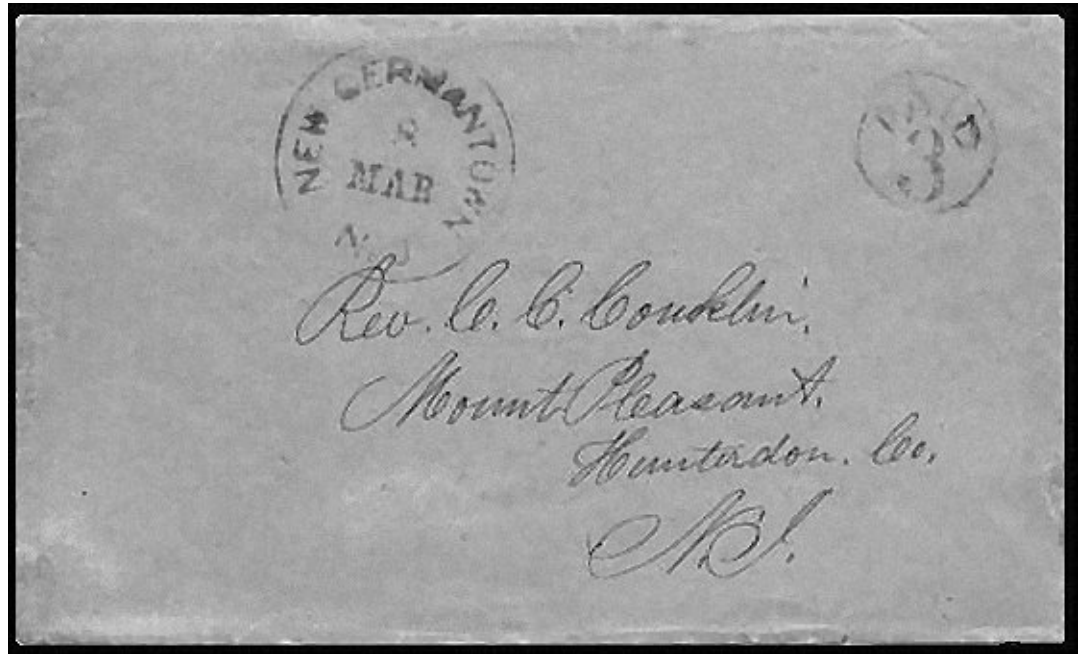 NEW GERMANTOWN
8
MAR
N.J.
PAID
3
Rev. C. C. Conklin.
Mount Pleasant.
Hunterdon. Co.
N.J.